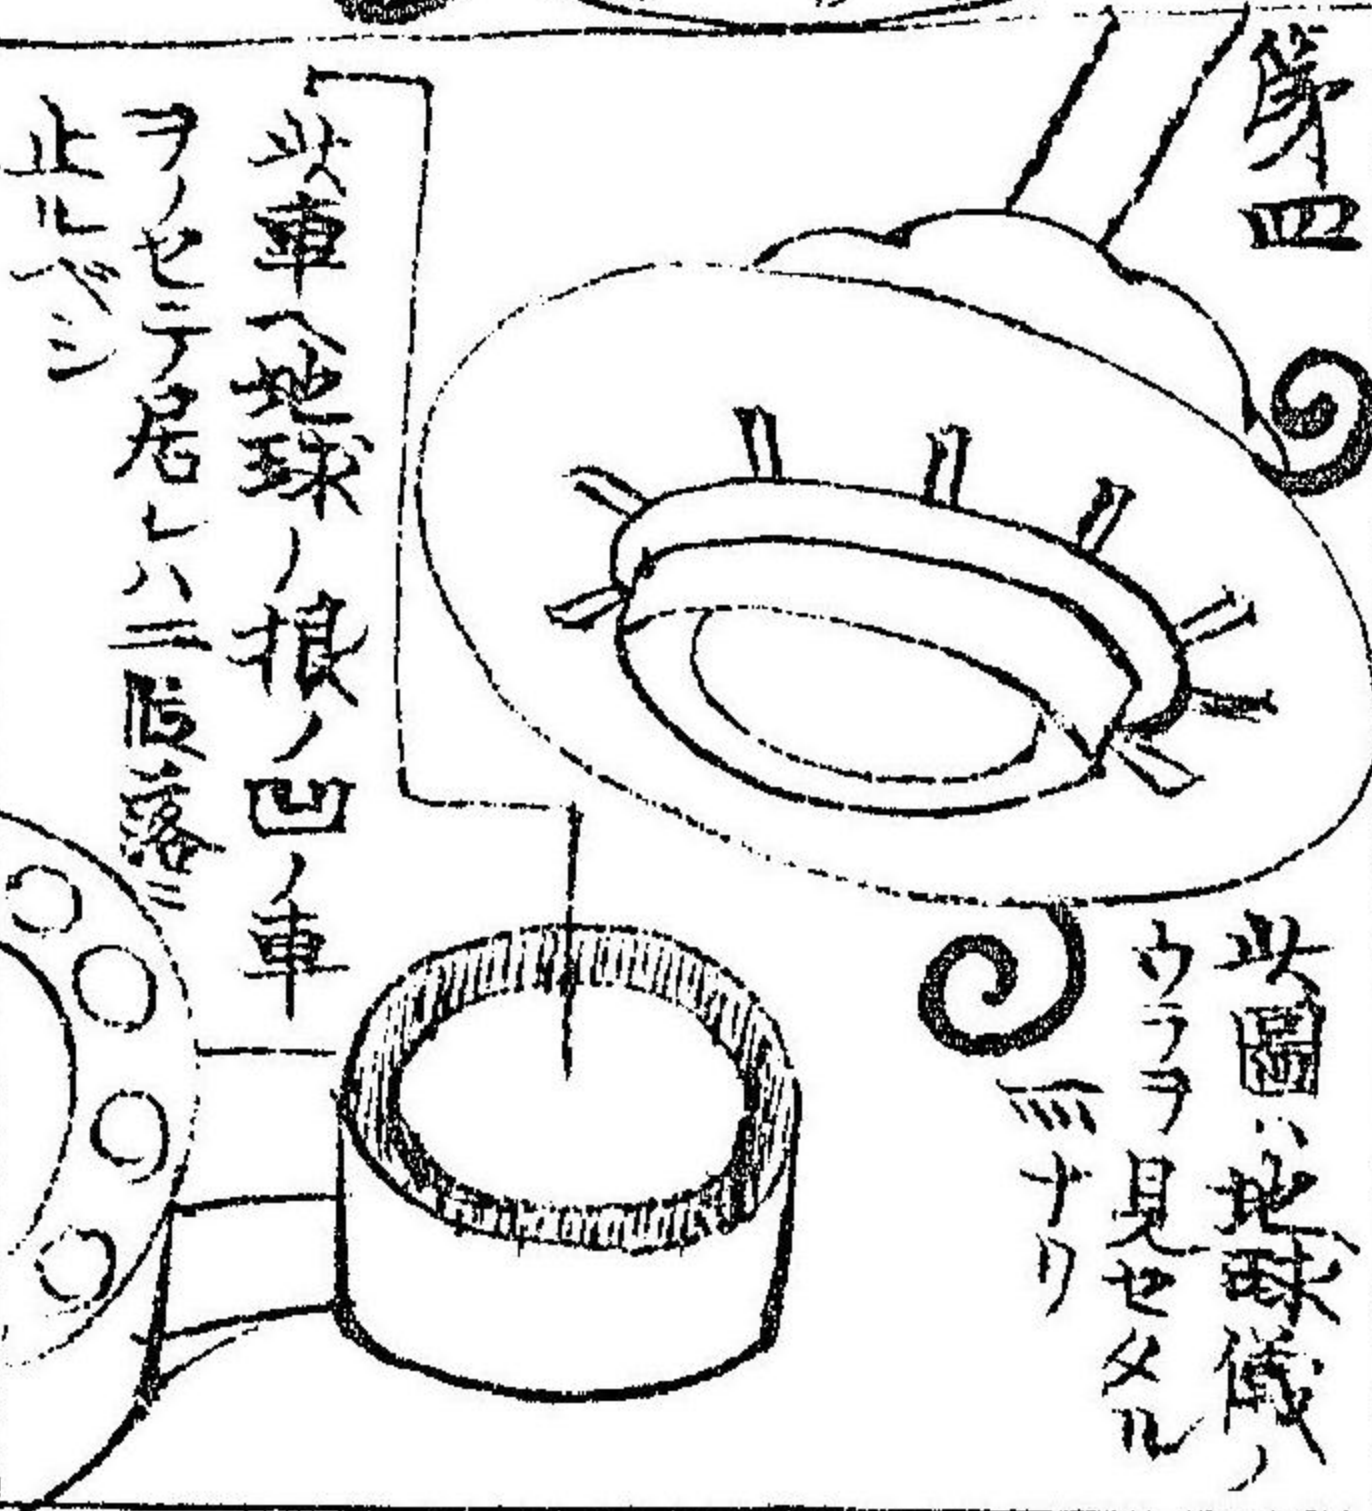 第四
此圖ハ地球儀ノ
ウラヲ見セタル
ナリ
此車ヘ地球ノ根ノ凹ノ車
ヲノセテ居レハ三段落ニ
止ルベシ